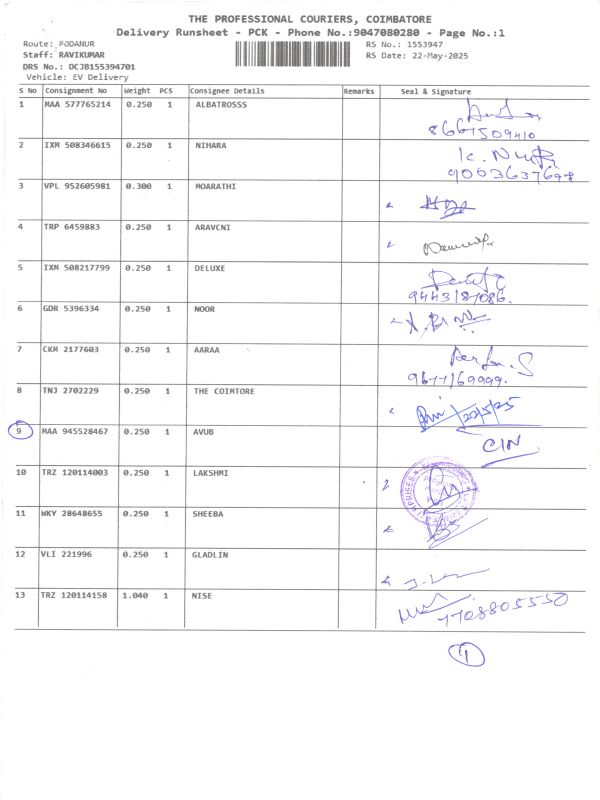 THE PROFESSIONAL COURIERS, COIMBATORE
Delivery Runsheet - PCK - Phone No.:9047080280 - Page No.:1
Route: PODANUR RS No.: 1553947
Staff: RAVIKUMAR RS Date: 22-May-2025
DRS No.: DCJB155394701
Vehicle: EV Delivery
S No Consignment No Weight PCS Consignee Details Remarks Seal & Signature
1 MAA 577765214 0.250 1 ALBATROSSS
8667509410
2 IXM 508346615 0.250 1 NIHARA
9003637698
3 VPL 952605981 0.300 1 MOARATHI
4 TRP 6459883 0.250 1 ARAVCNI
5 IXM 508217799 0.250 1 DELUXE
9443187086.
6 GDR 5396334 0.250 1 NOOR
7 CKM 2177603 0.250 1 AARAA
9677169999.
8 TNJ 2702229 0.250 1 THE COIMTORE
22/5/25
9 MAA 945528467 0.250 1 AVUB
CIN
10 TRZ 120114003 0.250 1 LAKSHMI
11 WKY 28648655 0.250 1 SHEEBA
12 VLI 221996 0.250 1 GLADLIN
13 TRZ 120114158 1.040 1 NISE
7708805550
1